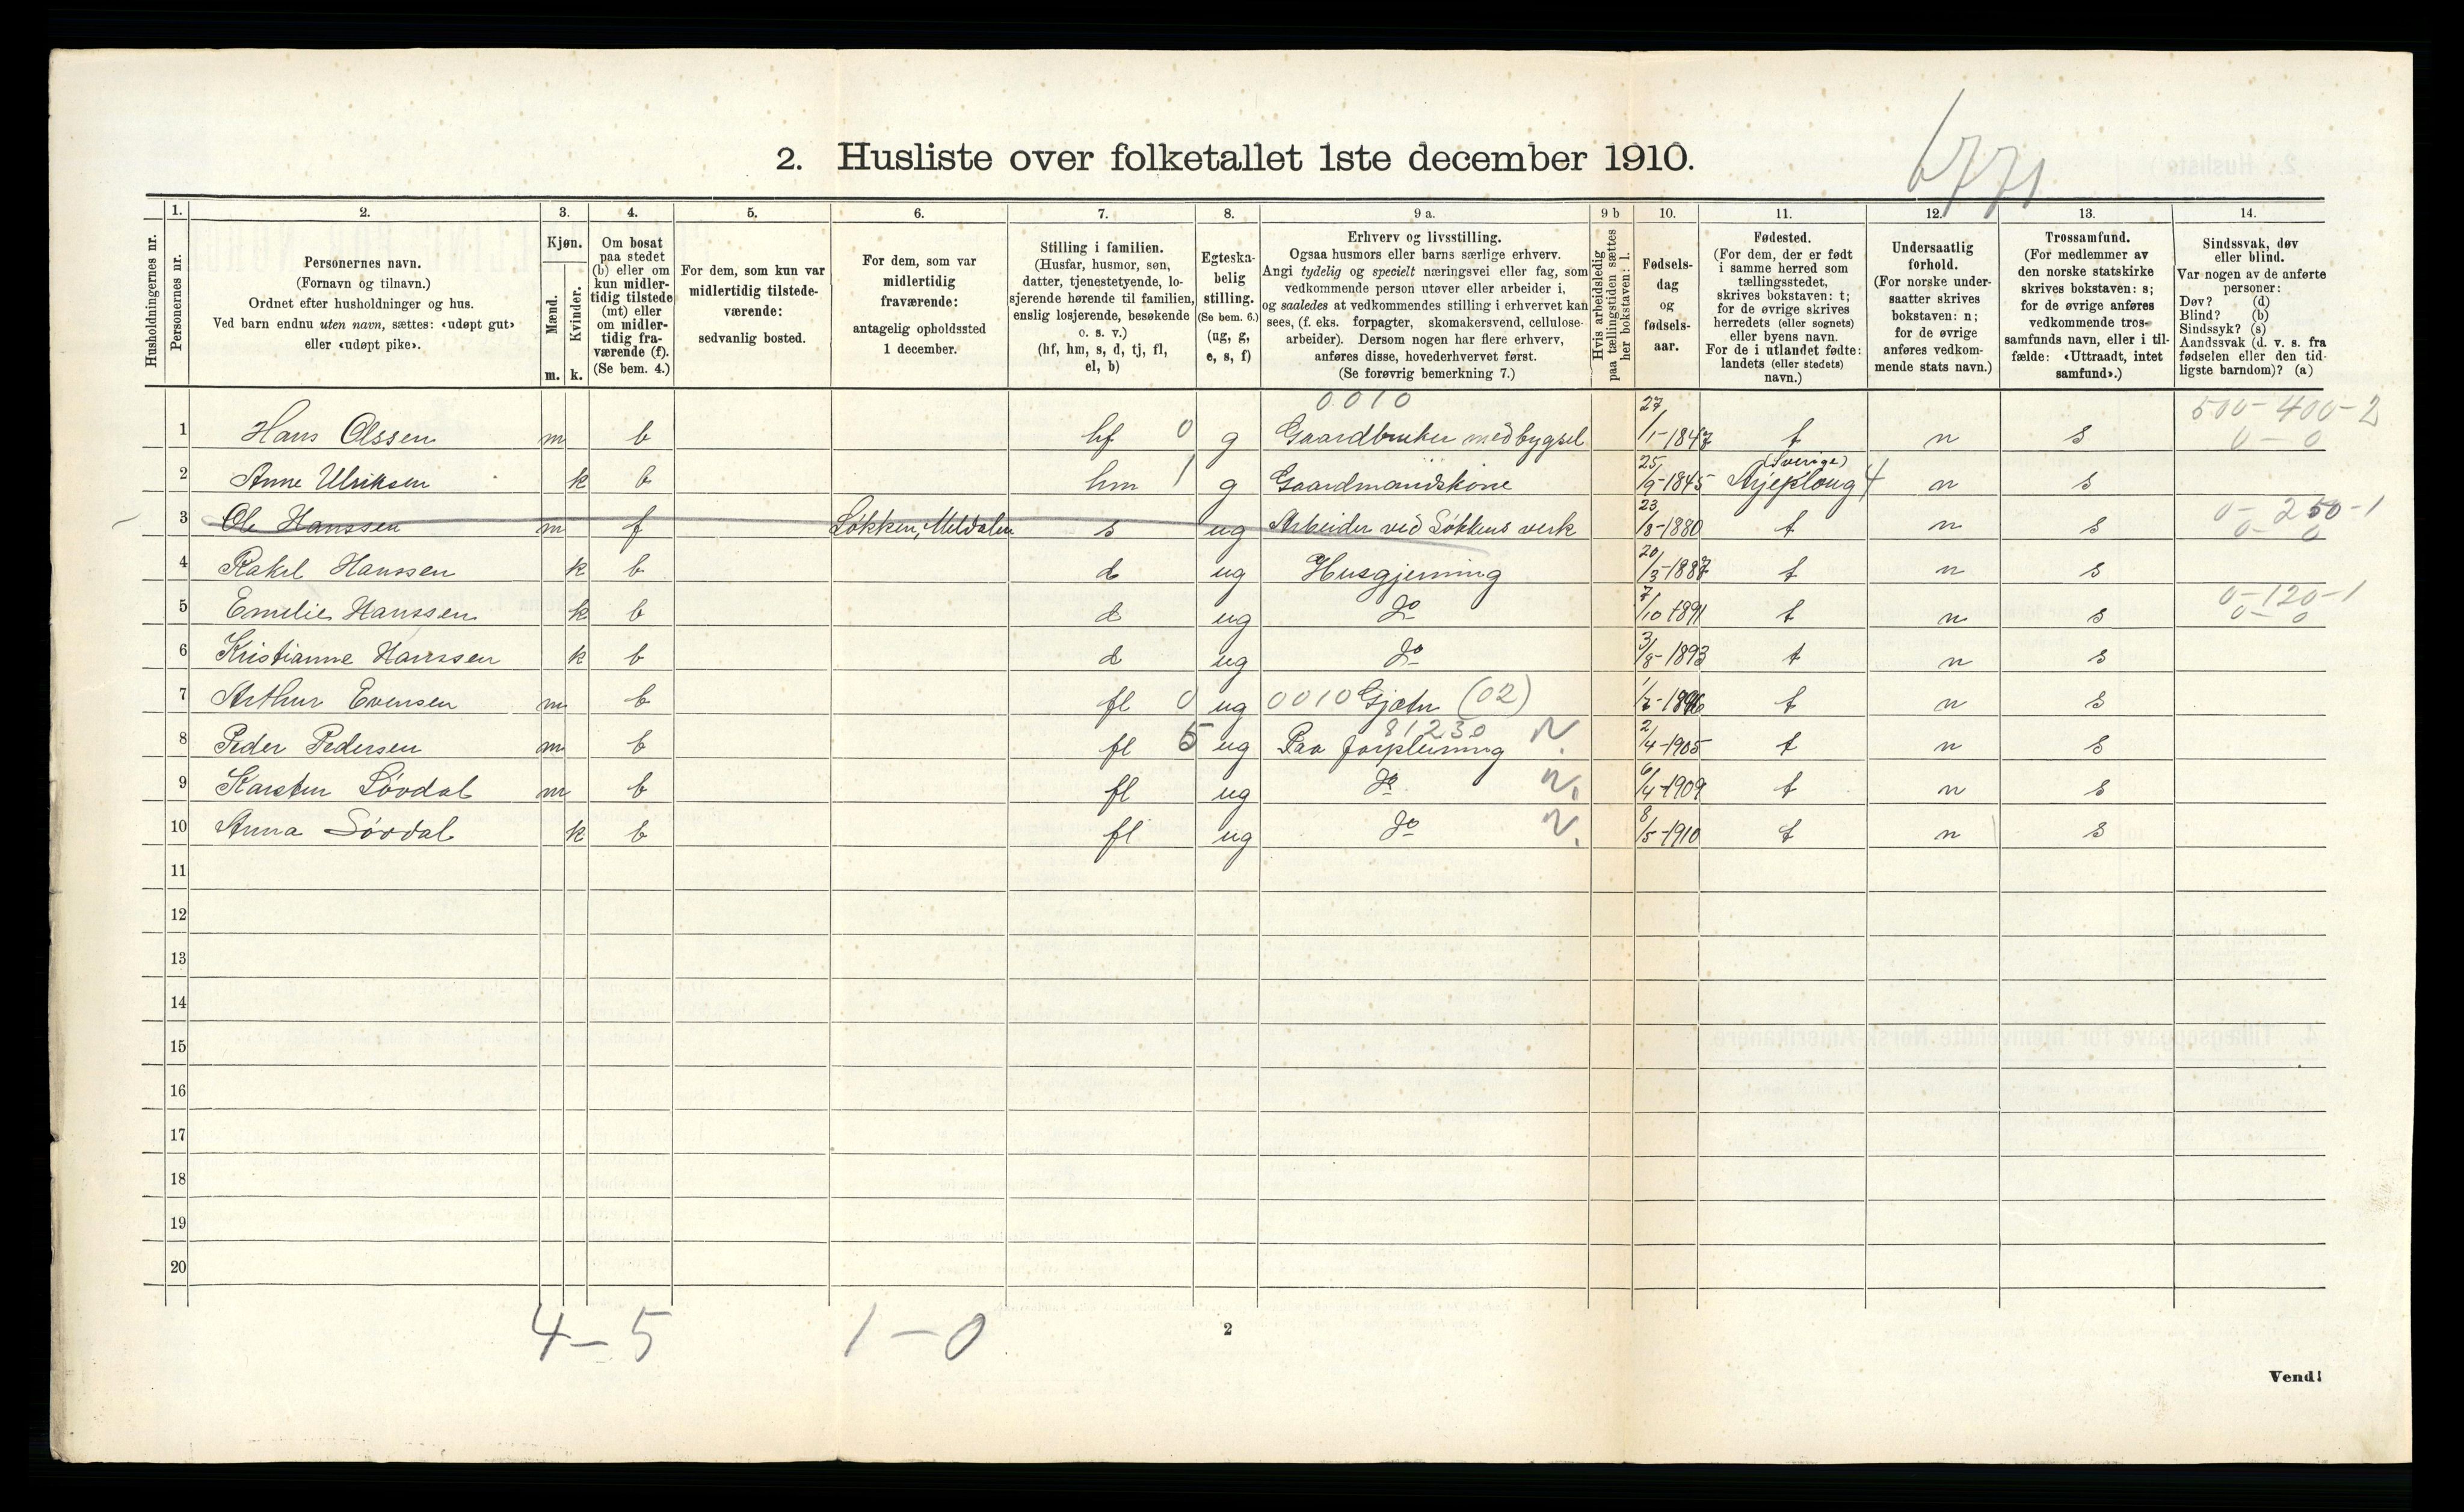 6771
2. Husliste over folketallet 1ste december 1910.
Husholdningernes nr.
1. Personernes nr.
2. Personernes navn.
(Fornavn og tilnavn.)
Ordnet efter husholdninger og hus.
Ved barn endnu uten navn, sættes: «udøpt gut»
eller «udøpt pike».
3. Kjøn.
Mænd. Kvinder.
m. k.
4. Om bosat
paa stedet
(b) eller om
kun midler-
tidig tilstede
(mt) eller
om midler-
tidig fra-
værende (f).
(Se bem. 4.)
5. For dem, som kun var
midlertidig tilstede-
værende:
sedvanlig bosted.
6. For dem, som var
midlertidig
fraværende:
antagelig opholdssted
1 december.
7. Stilling i familien.
(Husfar, husmor, søn,
datter, tjenestetyende, lo-
sjerende hørende til familien,
enslig losjerende, besøkende
o. s. v.)
(hf, hm, s, d, tj, fl,
el, b)
8. Egteska-
belig
stilling.
(Se bem. 6.)
(ug, g,
e, s, f)
9 a. Erhverv og livsstilling.
Ogsaa husmors eller barns særlige erhverv.
Angi tydelig og specielt næringsvei eller fag, som
vedkommende person utøver eller arbeider i,
og saaledes at vedkommendes stilling i erhvervet kan
sees, (f. eks. forpagter, skomakersvend, cellulose-
arbeider). Dersom nogen har flere erhverv,
anføres disse, hovederhvervet først.
(Se forøvrig bemerkning 7.)
9 b Hvis arbeidsledig
paa tællingstiden sættes
her bokstaven: l.
10. Fødsels-
dag
og
fødsels-
aar.
11. Fødested.
(For dem, der er født
i samme herred som
tællingsstedet,
skrives bokstaven: t;
for de øvrige skrives
herredets (eller sognets)
eller byens navn.
For de i utlandet fødte:
landets (eller stedets)
navn.)
12. Undersaatlig
forhold.
(For norske under-
saatter skrives
bokstaven: n;
for de øvrige
anføres vedkom-
mende stats navn.)
13. Trossamfund.
(For medlemmer av
den norske statskirke
skrives bokstaven: s;
for de øvrige anføres
vedkommende tros-
samfunds navn, eller i til-
fælde: «Uttraadt, intet
samfund».)
14. Sindssvak, døv
eller blind.
Var nogen av de anførte
personer:
Døv? (d)
Blind? (b)
Sindssyk? (s)
Aandssvak (d. v. s. fra
fødselen eller den tid-
ligste barndom)? (a)
0010 500-400-2
1 Hans Olssen m b hf 0 g Gaardbruker med bygsel 27/1-1847 t n s 0-0
2 Anne Ulriksen k b hm 1 g Gaardmandskone 25/9-1845 (Sverige) Arjeploug 4 n s
3 Ole Hanssen m f Løkken, Meldalen s ug Arbeider ved Løkkens verk 23/8-1880 t n s 0-250-1 0-0
4 Rakel Hanssen k b d ug Husgjerning 20/3-1887 t n s
5 Emelie Hanssen k b d ug Do 7/10 1891 t n s 0-120-1 0-0
6 Kristianne Hanssen k b d ug Do 3/8-1893 t n s
7 Arthur Evensen m b fl 0 ug 0010 Gjæter (02) 1/7-1896 t n s
8 Peder Pedersen m b fl 5 ug Paa forpleining 81230 N. 2/4-1905 t n s
9 Karsten Løvdal m b fl ug Do N. 6/4-1909 t n s
10 Anna Løvdal k b fl ug Do N. 8/5-1910 t n s
11
12
13
14
15
16
17
18
19
20
4-5 1-0
2
Vend!